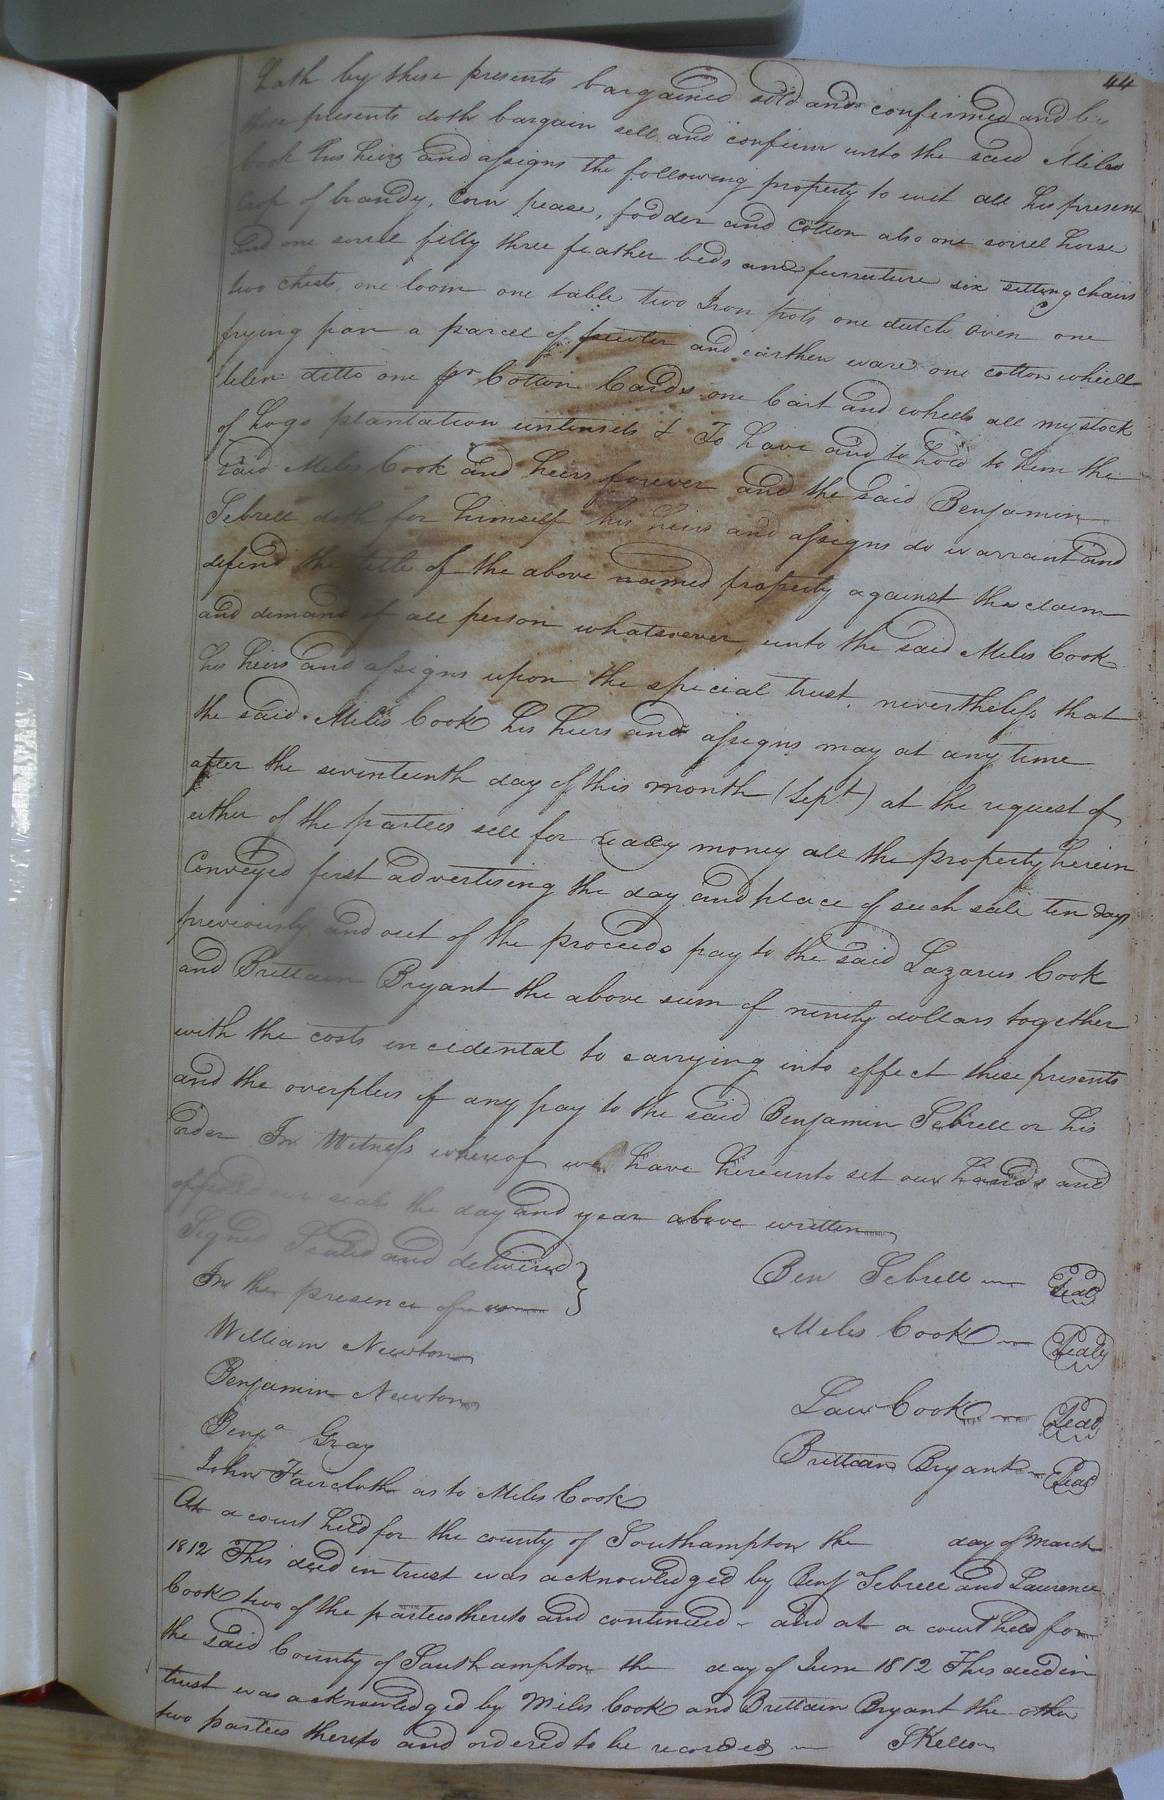 44
hath by these presents bargained sold and confirmed and by
these presents doth bargain sell and confirm unto the said Miles
Cook his heirs and assigns the following property to wit all his present
Crop of brandy, Corn pease, fodder and Cotton also one sorrel horse
and one sorrel filly three feather beds and furniture six sitting chairs
two chests, one loom one table two Iron pots one dutch oven one
frying pan a parcel of pewter and earthen ware one cotton wheell
linen ditto one pr Cotton Cards one Cart and wheels all my stock
of hogs plantation untensils & To have and to hold to him the
said Miles Cook and heirs forever and the said Benjamin
Sebrell doth for himself his heirs and assigns do warrant and
defend the title of the above named property against the claim
and demand of all person whatsoever, unto the said Miles Cook
his heirs and assigns upon the special trust, nevertheless that
the said Miles Cook his heirs and assigns may at any time
after the seventeenth day of this month (Sept) at the request of
either of the parties sell for ready money all the property herein
Conveyed first advertising the day and place of such sale ten days
previously and out of the proceeds pay to the said Lazarus Cook
and Brittain Bryant the above sum of ninety dollars together
with the costs incidental to carrying into effect these presents
and the overplus if any pay to the said Benjamin Sebrell or his
order In Witness whereof we have hereunto set our hands and
affixed our seals the day and year above written
Signed Sealed and delivered
In the presence of us
Ben Sebrell Seal
Miles Cook Seal
William Newton
Benjamin Newton
Law Cook Seal
Benja Gray
Brittain Bryant Seal
John Faircloth as to Miles Cook
At a court held for the county of Southampton the day of March
1812 This deed in trust was acknowledged by Benja Sebrell and Laurence
Cook two of the parties thereto and continued - and at a court held for
the said County of Southampton the day of June 1812 This deed in
trust was acknowledged by Miles Cook and Brittain Bryant the other
two parties thereto and ordered to be recorded